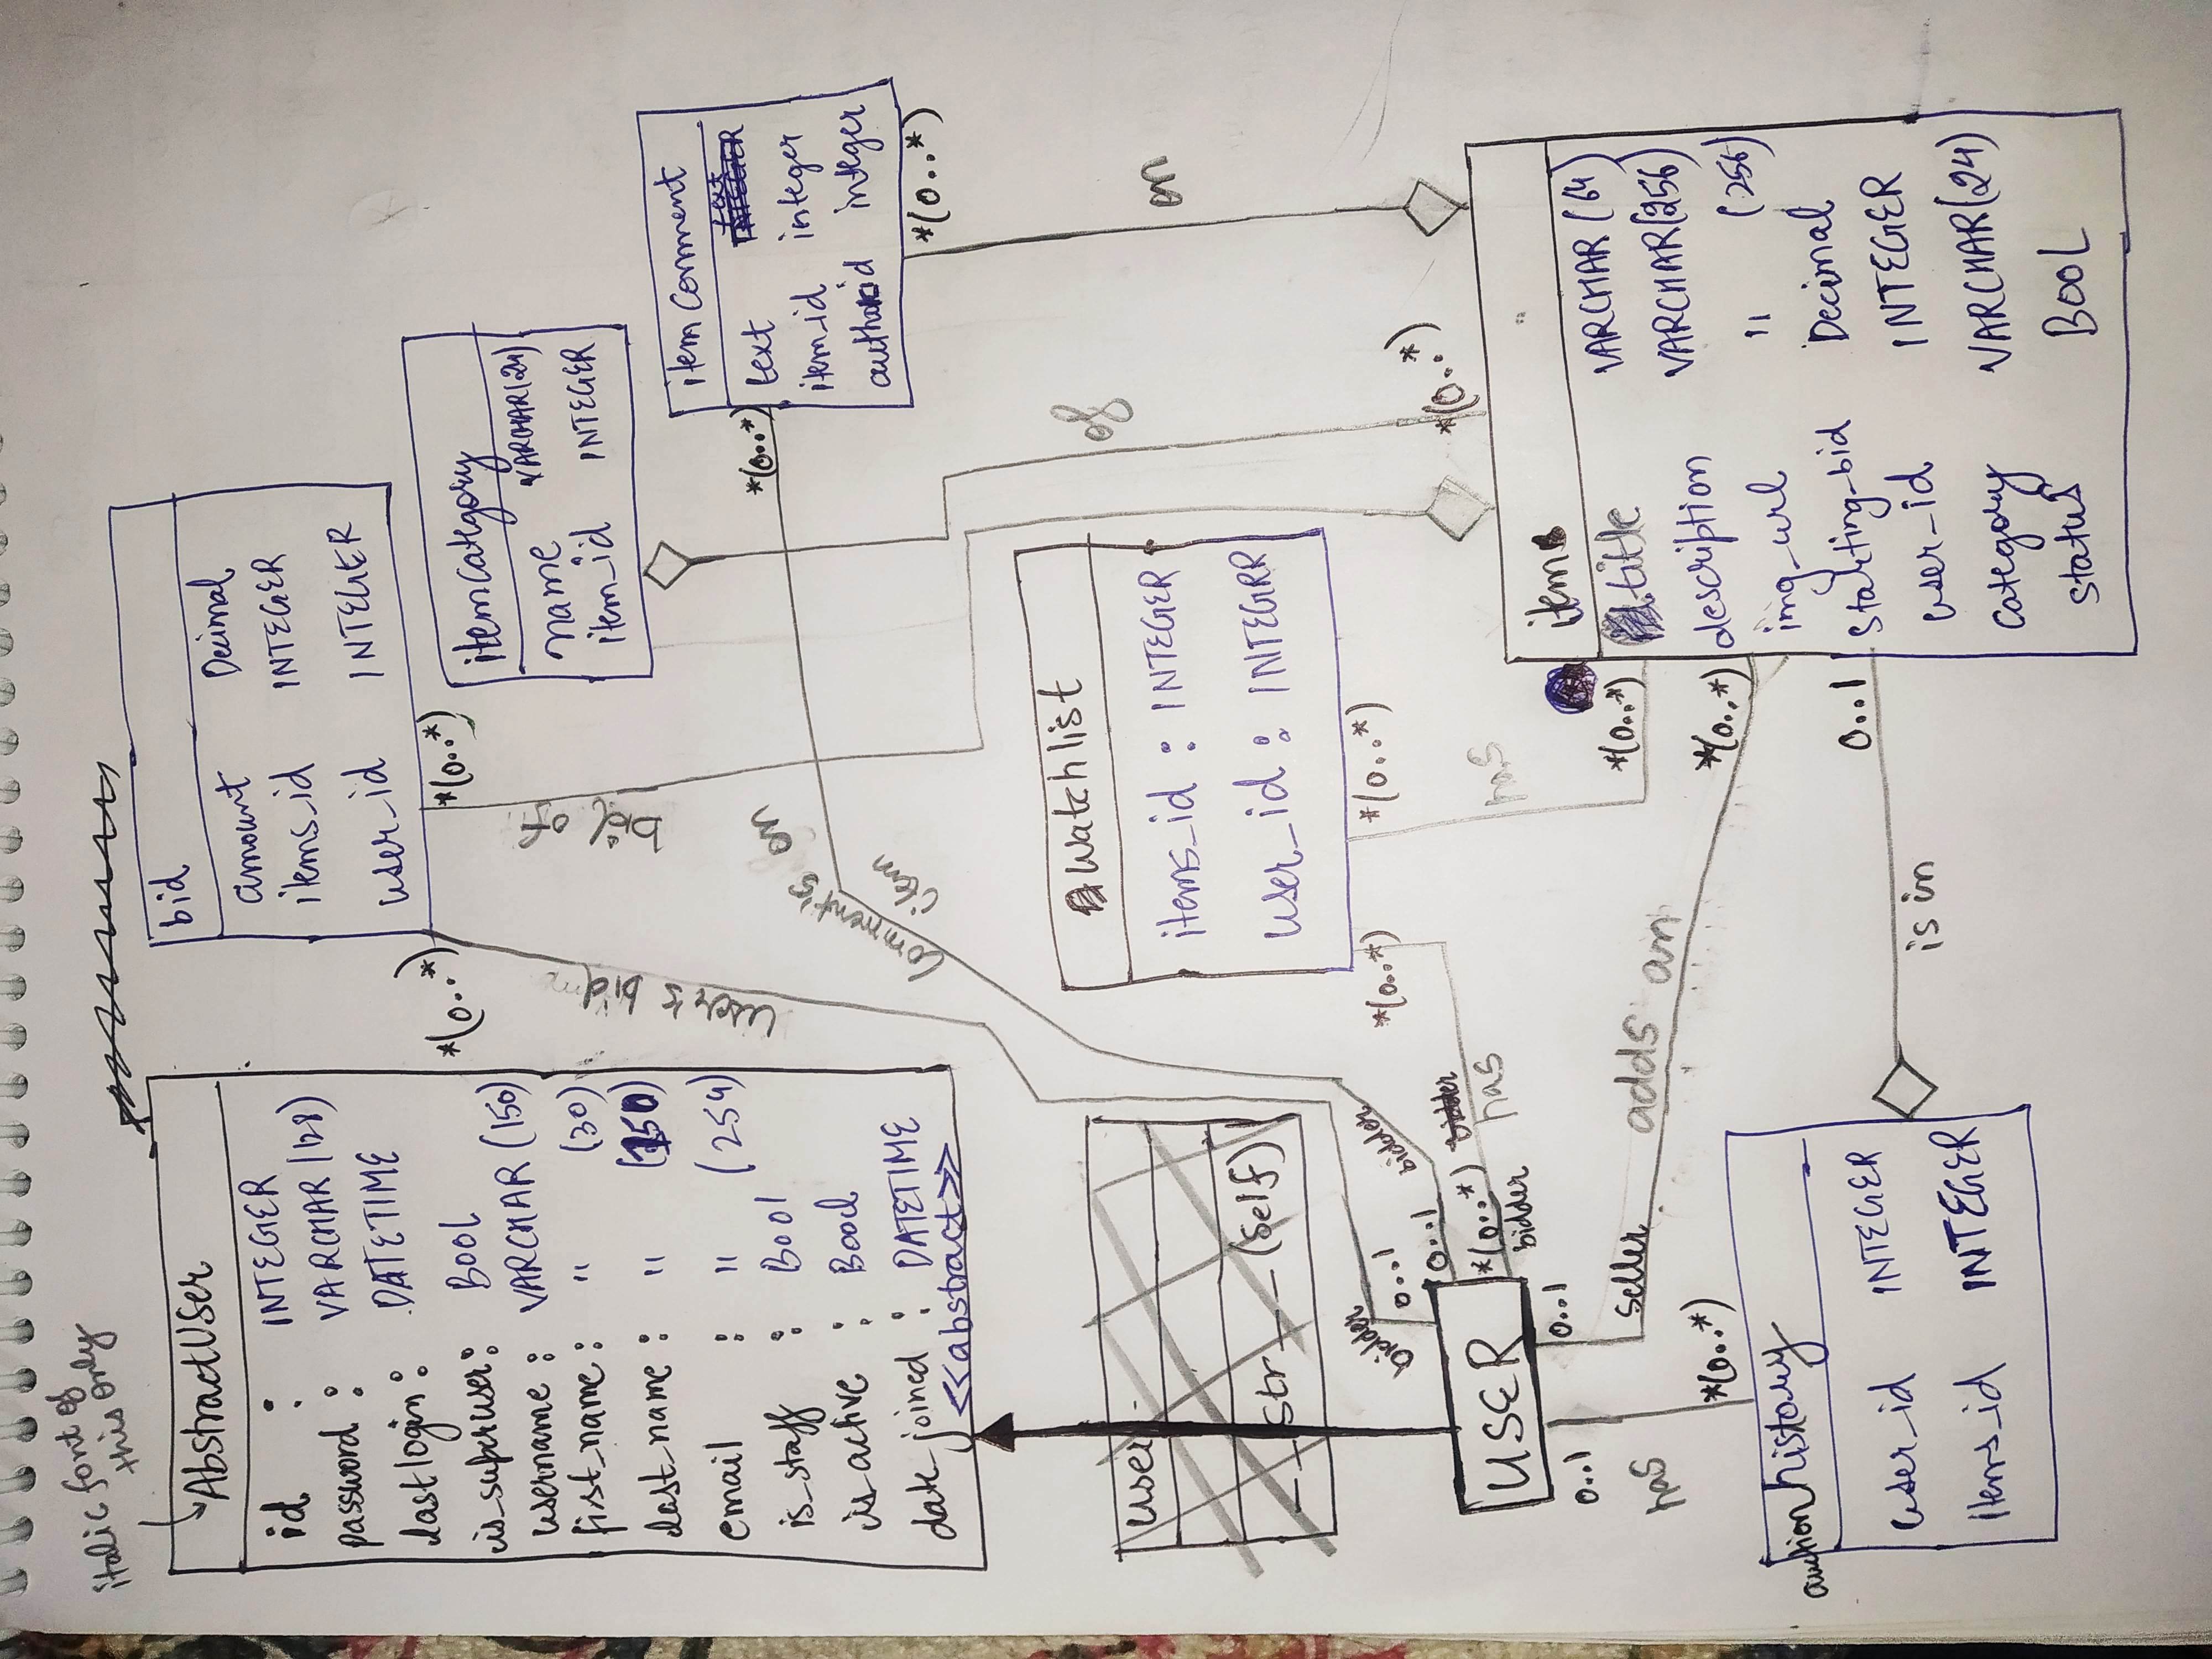 italic font of
this only
AbstractUser
id : INTEGER
password : VARCHAR (128)
lastlogin : DATETIME
is_superuser : BOOL
username : VARCHAR (150)
first_name : " (30)
last_name : " (150)
email : " (254)
is_staff : Bool
is_active : Bool
date_joined : DATETIME
<<abstract>>
bid
amount Decimal
items_id INTEGER
user_id INTEGER
*(0..*)
*(0..*)
user's bid
bid of
itemcategory
name VARCHAR(24)
item_id INTEGER
item Comment
text text
item_id integer
authorid integer
*(0..*)
*(0..*)
Comment's on
item
of
on
user
__str__(self)
Watchlist
items_id : INTEGER
user_id : INTEGRR
*(0..*)
*(0..*)
bidder
0...1
bidder
0...1
*(0..*) bidder
bidder
has
has
USER
0..1
0..1
has
seller
adds an
*(0..*)
*(0..*)
*(0..*)
*(0..*)
item
title VARCHAR (64)
description VARCHAR(256)
img_url " (256)
Starting_bid Decimal
user_id INTEGER
Category VARCHAR(24)
Status BOOL
auctionhistory
user_id INTEGER
items_id INTEGER
0..1
is in